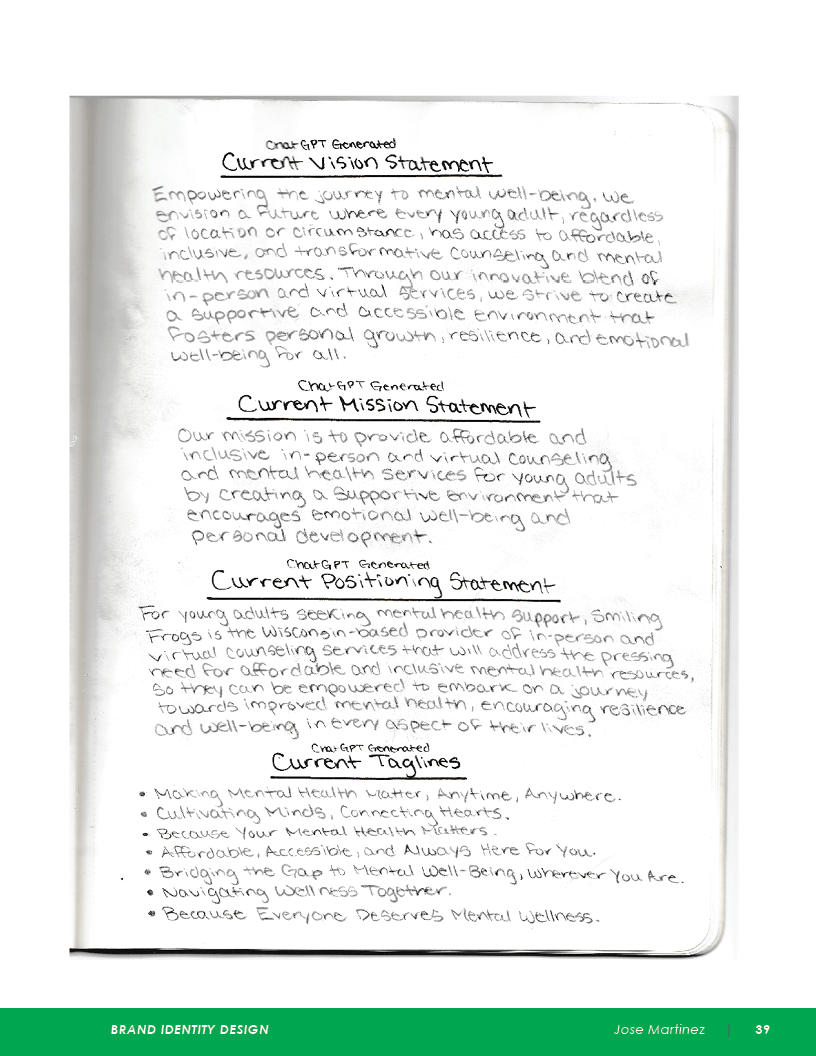 ChatGPT Generated
Current Vision Statement
Empowering the journey to mental well-being. We
envision a future where every young adult, regardless
of location or circumstance, has access to affordable,
inclusive, and transformative counseling and mental
health resources. Through our innovative blend of
in-person and virtual services, we strive to create
a supportive and accessible environment that
fosters personal growth, resilience, and emotional
well-being for all.
ChatGPT Generated
Current Mission Statement
Our mission is to provide affordable and
inclusive in-person and virtual counseling
and mental health services for young adults
by creating a supportive environment that
encourages emotional well-being and
personal development.
ChatGPT Generated
Current Positioning Statement
For young adults seeking mental health support, Smiling
Frogs is the Wisconsin-based provider of in-person and
virtual counseling services that will address the pressing
need for affordable and inclusive mental health resources,
so they can be empowered to embark on a journey
towards improved mental health, encouraging resilience
and well-being in every aspect of their lives.
ChatGPT Generated
Current Taglines
• Making Mental Health Matter, Anytime, Anywhere.
• Cultivating Minds, Connecting Hearts.
• Because Your Mental Health Matters.
• Affordable, Accessible, and Always Here For You.
• Bridging the Gap to Mental Well-Being, Wherever You Are.
• Navigating Wellness Together.
• Because Everyone Deserves Mental Wellness.
BRAND IDENTITY DESIGN Jose Martinez | 39